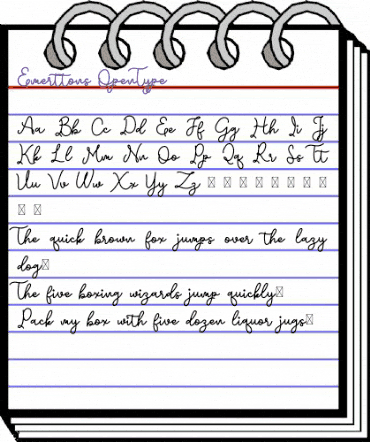 Emerttons OpenType
Aa Bb Cc Dd Ee Ff Gg Hh Ii Jj
Kk Ll Mm Nn Oo Pp Qq Rr Ss Tt
Uu Vv Ww Xx Yy Zz □ □ □ □ □ □ □ □
□ □
The quick brown fox jumps over the lazy
dog□
The five boxing wizards jump quickly□
Pack my box with five dozen liquor jugs□